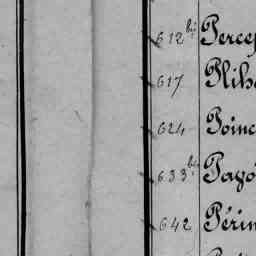 612 bis Percep
617 Plih
624 Poinc
633 bis Payo
642 Périn